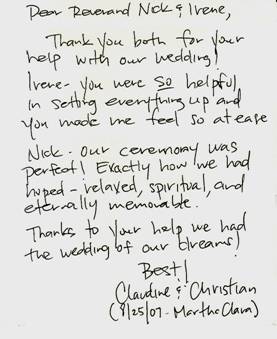 Dear Reverend Nick & Irene,
Thank you both for your
help with our wedding!
Irene - you were SO helpful
in setting everything up and
you made me feel so at ease
Nick - our ceremony was
perfect! Exactly how we had
hoped - relaxed, spiritual, and
eternally memorable.
Thanks to your help we had
the wedding of our dreams!
Best!
Claudine & Christian
(8/25/07 - Martha Clara)